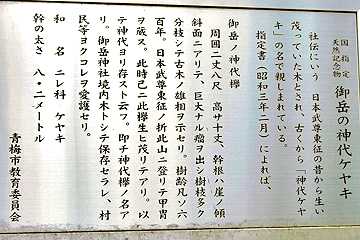 国指定
天然記念物
御岳の神代ケヤキ
社伝にいう 日本武尊東征の昔から生い
茂っていた木とされ、古くから「神代ケヤ
キ」の名で親しまれている。
指定書(昭和三年二月)によれば、
御岳ノ神代欅
周囲二丈八尺 高サ十丈、幹根ハ崖ノ傾
斜面ニアリテ、巨大ナル瘤ヲ出シ樹枝多ク
分枝シテ古木ノ雄相ヲ示セリ。樹齢凡ソ六
百年。日本武尊東征ノ折此山ニ登リテ甲冑
ヲ蔵ス。此時己ニ此欅生ヒ茂リテアリ。以
テ神代ヨリ存スト云フ。即チ神代欅ノ名ア
リ。御岳神社境内木トシテ保存セラレ、村
民等ヨクコレヲ愛護セリ。
和名 ニレ科 ケヤキ
幹の太さ 八・二メートル
青梅市教育委員会